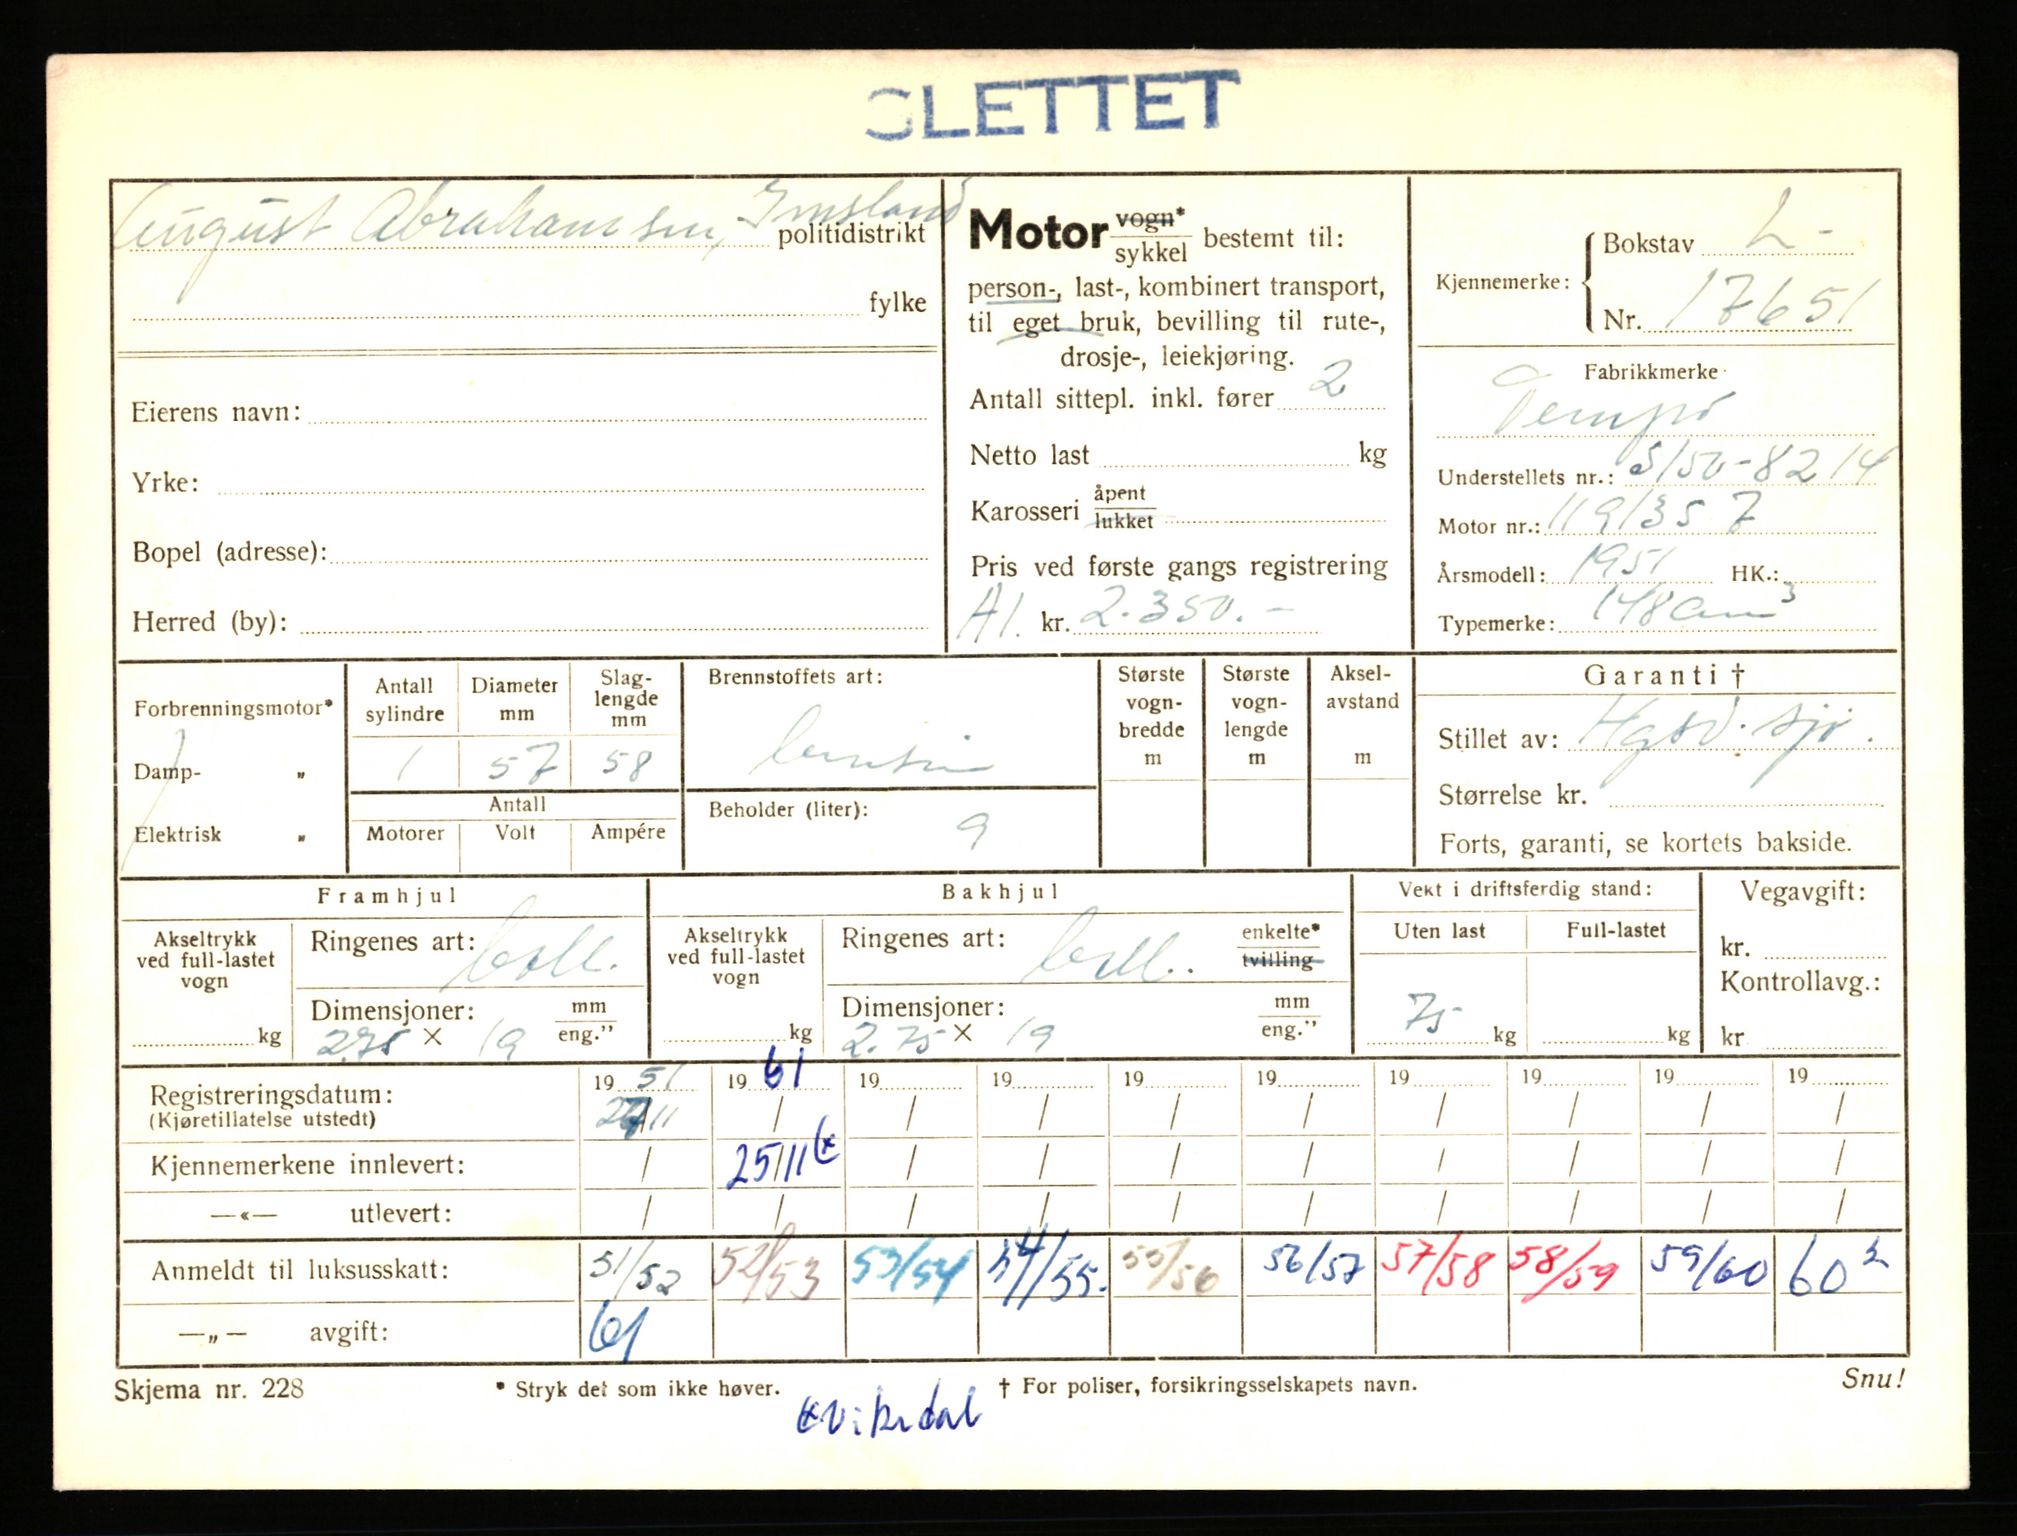 SLETTET
August Abrahamsen, Imsland politidistrikt
fylke
Eierens navn:
Yrke:
Bopel (adresse):
Herred (by):
Motor vogn* / sykkel bestemt til:
person-, last-, kombinert transport,
til eget bruk, bevilling til rute-,
drosje-, leiekjøring.
Antall sittepl. inkl. fører 2
Netto last kg
Karosseri åpent / lukket
Pris ved første gangs registrering
Al. kr. 2.350.-
Kjennemerke: Bokstav L-
Nr. 17651
Fabrikkmerke
Tempo
Understellets nr.: S/50-8214
Motor nr.: 1191357
Årsmodell: 1951 HK.:
Typemerke: 148 cm3
Forbrenningsmotor*
Damp- „
Elektrisk „
Antall sylindre Diameter mm Slaglengde mm
1 57 58
Antall
Motorer Volt Ampére
Brennstoffets art:
bensin
Beholder (liter):
9
Største vogn-bredde m
Største vogn-lengde m
Aksel-avstand m
Garanti †
Stillet av: Hgsd. sjø.
Størrelse kr.
Forts, garanti, se kortets bakside.
Framhjul
Akseltrykk ved full-lastet vogn kg
Ringenes art: ball.
Dimensjoner: mm / eng."
2.75 × 19
Bakhjul
Akseltrykk ved full-lastet vogn kg
Ringenes art: ball. enkelte* / tvilling
Dimensjoner: mm / eng."
2.75 × 19
Vekt i driftsferdig stand:
Uten last Full-lastet
75 kg kg
Vegavgift:
kr.
Kontrollavg.:
kr
Registreringsdatum: 19 51 19 61 19 19 19 19 19 19 19 19
(Kjøretillatelse utstedt) 27/11 / / / / / / / / /
Kjennemerkene innlevert: / 25/11 (* / / / / / / / /
—«— utlevert: / / / / / / / / / /
Anmeldt til luksusskatt: 51/52 52/53 53/54 54/55. 55/56 56/57 57/58 58/59 59/60 60 2
—„— avgift: 61
Skjema nr. 228
* Stryk det som ikke høver.
† For poliser, forsikringsselskapets navn.
Snu!
(* Vikedal